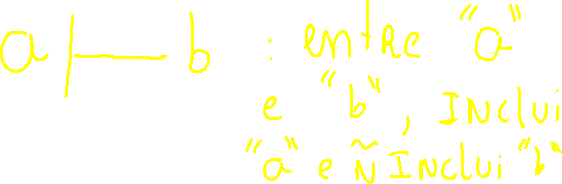 a |— b : entre "a"
e "b", INclui
"a" e Ñ INclui "b"